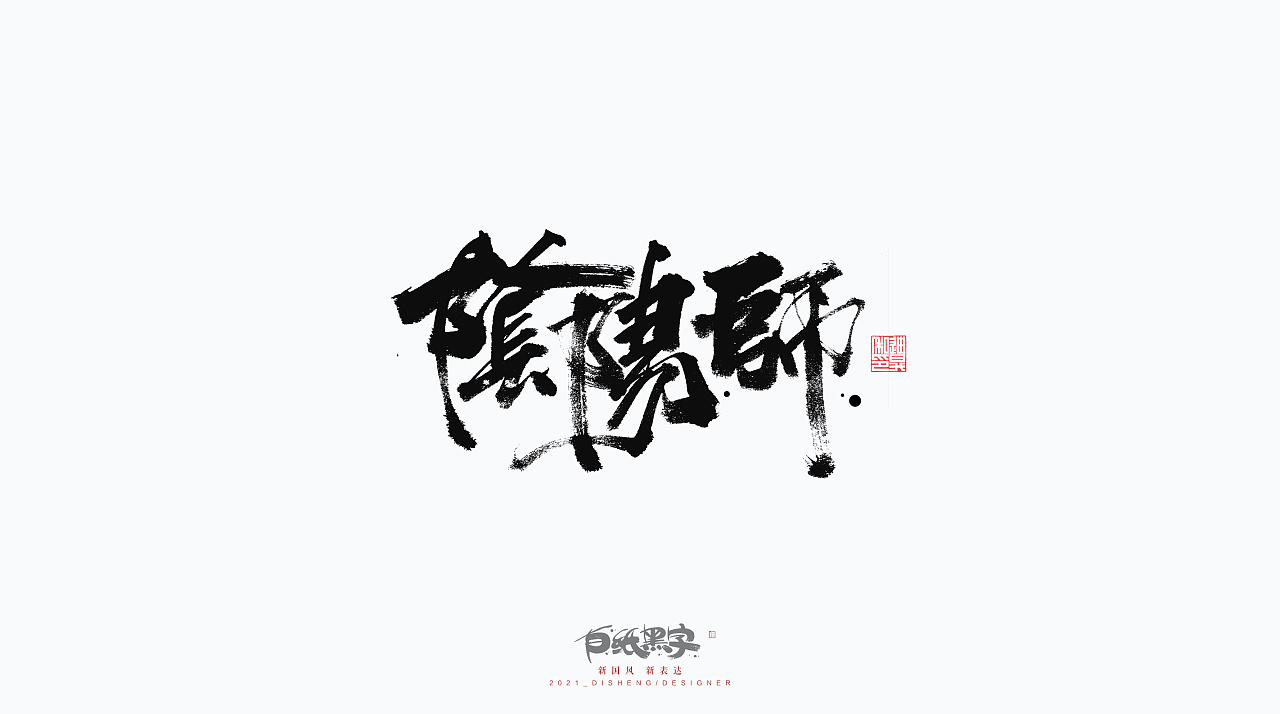 陰陽師
白纸黑字
新国风 新表达
2021_DISHENG/DESIGNER